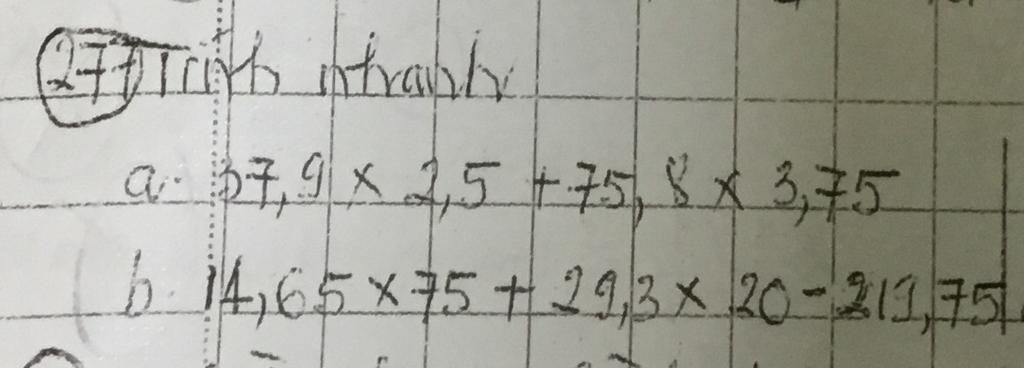 277 Tính nhanh
a. 37,9 × 2,5 + 75,8 × 3,75
b. 14,65 × 75 + 29,3 × 20 - 219,75